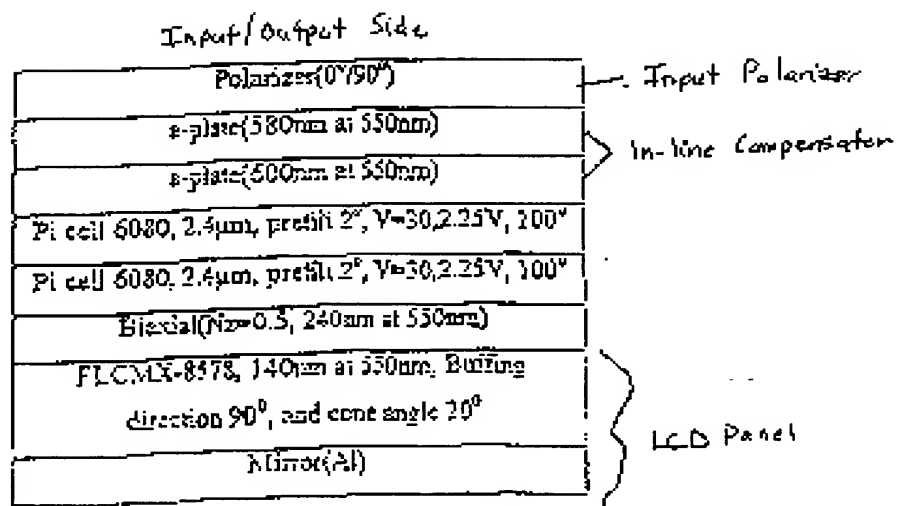 Input/Output Side
Polarizes(0°/90°)
Input Polarizer
a-plate(580nm at 550nm)
In-line Compensator
a-plate(600nm at 550nm)
Pi cell 6080, 2.4µm, pretilt 2°, V=30,2.25V, 100°
Pi cell 6080, 2.4µm, pretilt 2°, V=30,2.25V, 100°
Biaxial(Nz=0.5, 240nm at 550nm)
FLCMX-8578, 140nm at 550nm, Buffing
direction 90°, and cone angle 20°
LCD Panel
Mirror(Al)